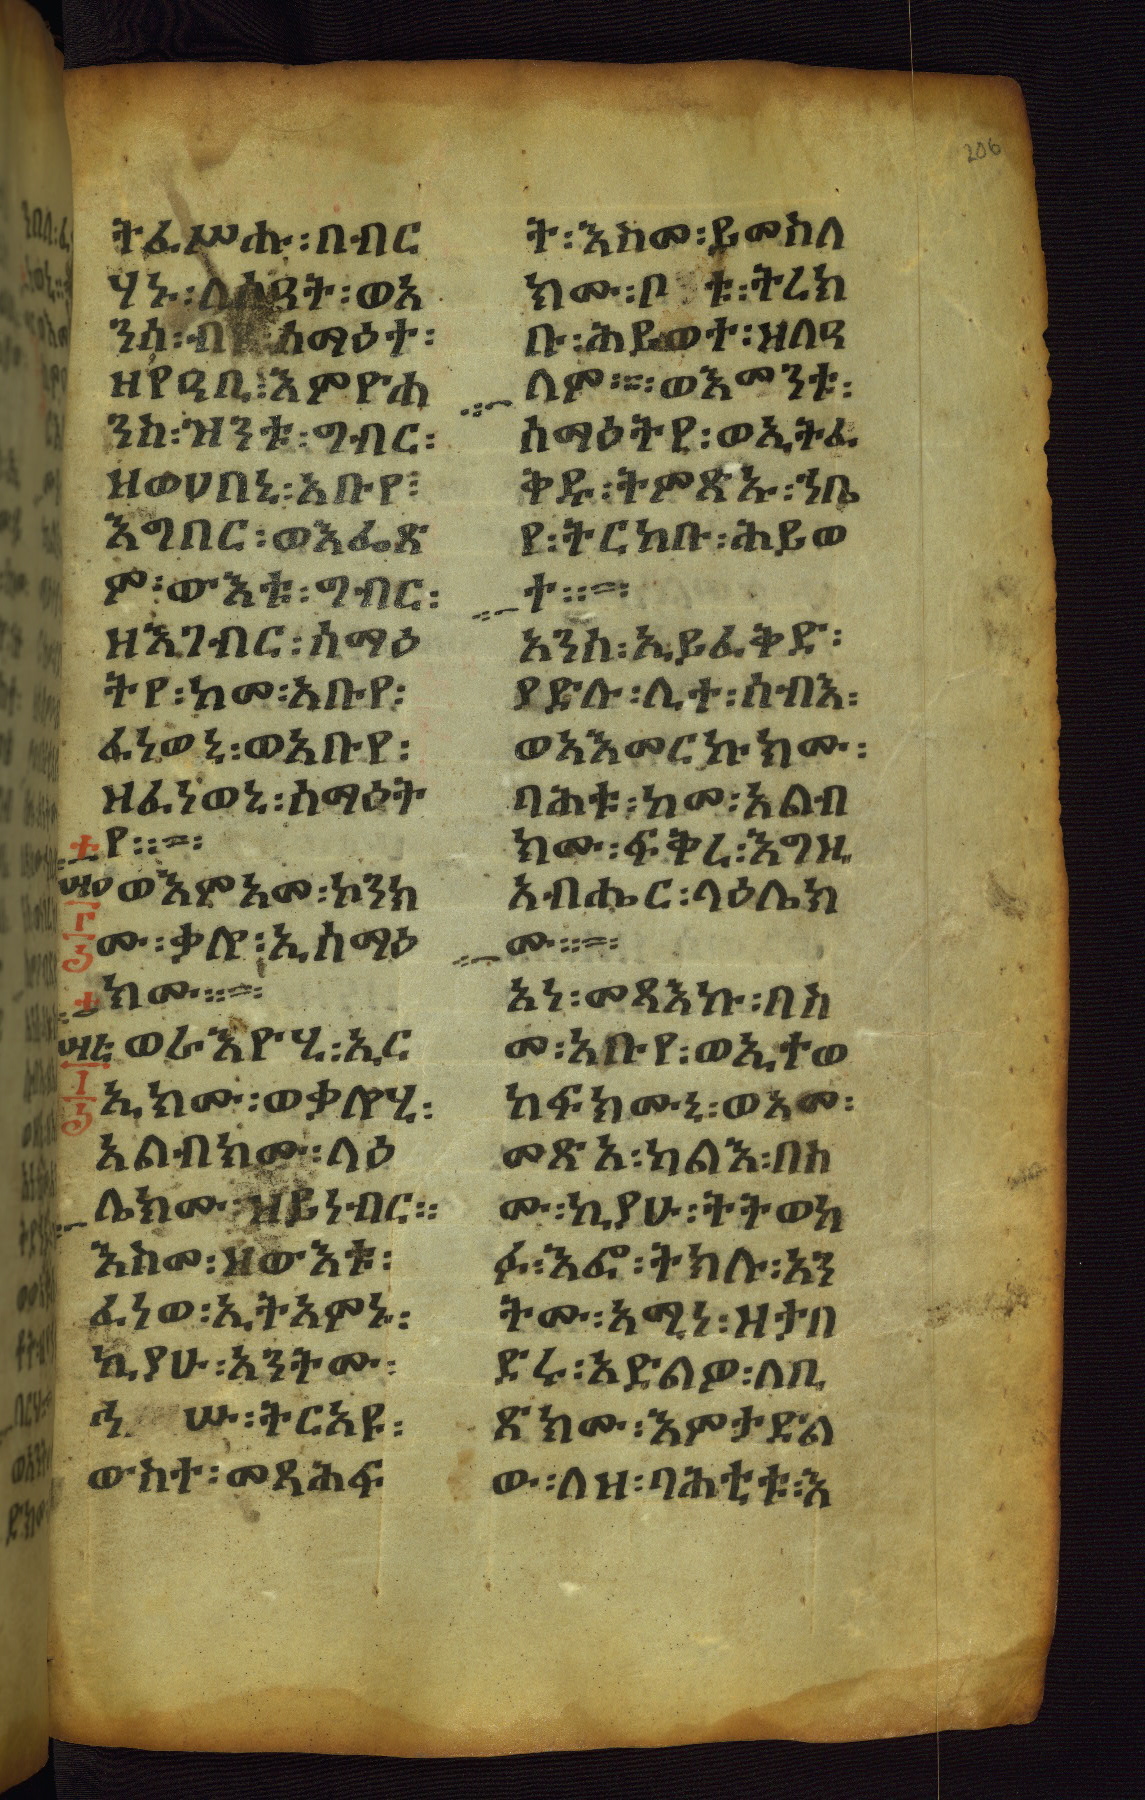 206
ትፈሥሑ፡በብር
ሃኑ፡ለሰዓት፡ወአ
ንሰ፡ብየ፡ሰማዕት፡
ዘየዓቢ፡እምዮሐ
ንስ፡ዝንቱ፡ግብር፡
ዘወሀበኒ፡አቡየ፡
እግበር፡ወእፌጽ
ም፡ውእቱ፡ግብር፡
ዘእገብር፡ሰማዕ
ትየ፡ከመ፡አቡየ፡
ፈነወኒ፡ወአቡየ፡
ዘፈነወኒ፡ሰማዕት
የ፡፡=፡
ወእምአመ፡ኮንክ
ሙ፡ቃሎ፡ኢሰማዕ
ክሙ፡፡=፡
ወራእዮሂ፡ኢር
ኢክሙ፡ወቃሎሂ፡
አልብክሙ፡ላዕ
ሌክሙ፡ዝይነብር።
እስመ፡ዘውእቱ፡
ፈነወ፡ኢትአምኑ፡
ኪያሁ፡አንትሙ፡
ኅ ሡ፡ትርአዩ፡
ውስተ፡መጻሕፍ
ት፡እስመ፡ይመስለ
ክሙ፡ቦ ቱ፡ትረክ
ቡ፡ሕይወተ፡ዘለዓ
ለም፡=፡ወእመንቱ፡
ሰማዕትየ፡ወኢትፈ
ቅዱ፡ትምጽኡ፡ኀቤ
የ፡ትርከቡ፡ሕይወ
ተ፡፡=፡
አንሰ፡ኢይፈቅድ፡
ያድሉ፡ሊተ፡ሰብእ፡
ወአእመርኩክሙ፡
ባሕቱ፡ከመ፡አልብ
ክሙ፡ፍቅረ፡እግዚ
አብሔር፡ላዕሌክ
ሙ፡፡=፡
አነ፡መጻእኩ፡በስ
መ፡አቡየ፡ወኢተወ
ከፍክሙኒ፡ወእመ፡
መጽአ፡ካልእ፡በስ
ሙ፡ኪያሁ፡ትትወከ
ፉ፡እፎ፡ትክሉ፡አን
ትሙ፡አሚነ፡ዘታበ
ድሩ፡አድልዎ፡ለቢ
ጽክሙ፡እምታድል
ው፡ለዝ፡ባሕቲቱ፡እ